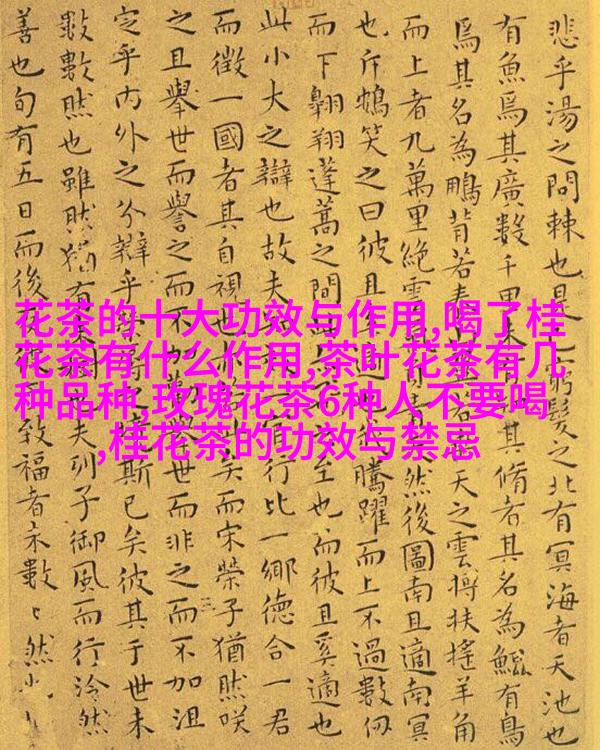 悲乎湯之問棘也是窮髮之北有冥海者天池也
有魚焉其廣數千里未有其脩者其名為鯤有鳥
焉其名為鵬背若泰若天之雲摶扶搖羊角
而上者九萬里絕雲然後圖南且適南冥
也斥鴳笑之曰彼且適也騰躍而上不過數仞
而下翱翔蓬蒿之間至也而彼且奚適也
此小大之辯也故夫官行比一鄉德合一君
而徵一國者其自視也矣而宋榮子猶然咲
之且舉世而譽之而不加舉世而非之而不加沮
定乎內外之分辯乎境斯已矣彼其于世未
數數然也雖然猶有也夫列子御風而行泠然
善也旬有五日而後致福者未數〻然
花茶的十大功效与作用,喝了桂
花茶有什么作用,茶叶花茶有几
种品种,玫瑰花茶6种人不要喝
,桂花茶的功效与禁忌